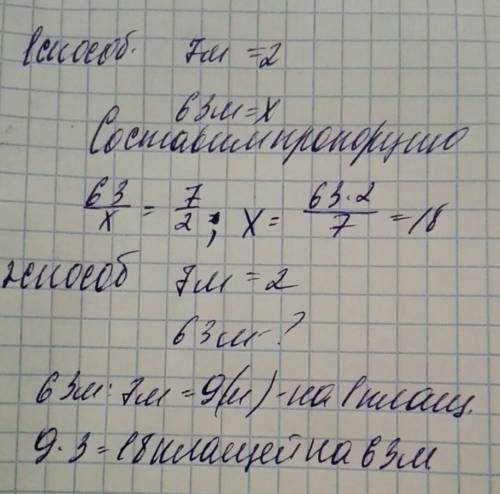 1 способ. 7м = 2
63м = х
Составим пропорцию
63/х = 7/2; х = 63·2/7 = 18
2 способ 7м = 2
63м - ?
63м : 7м = 9(м) - на 1 плащ.
9·3 = 18 плащей на 63м